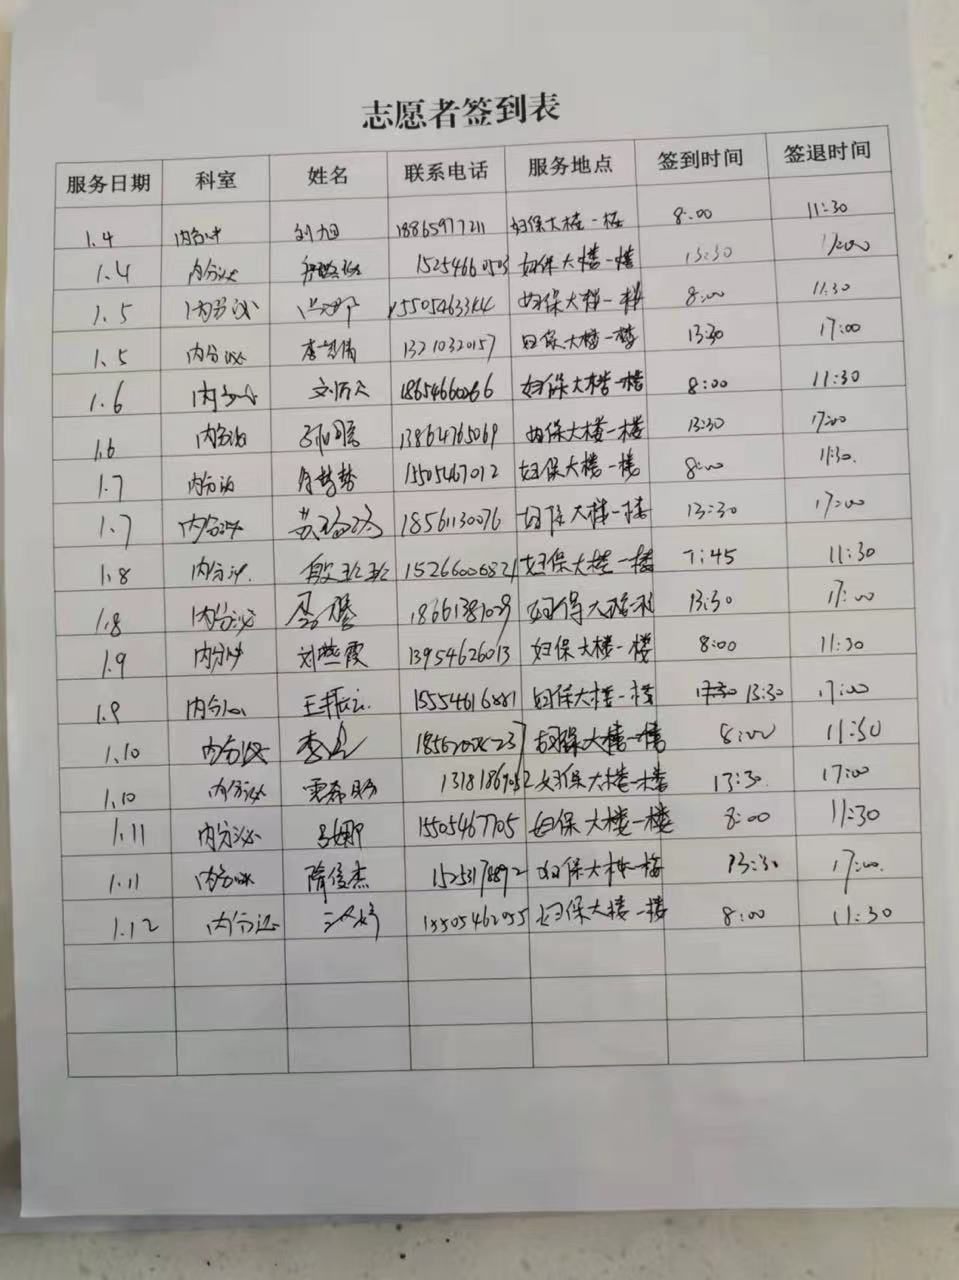 志愿者签到表
服务日期 科室 姓名 联系电话 服务地点 签到时间 签退时间
1.4 内分泌 刘旭 18865977211 妇保大楼一楼 8:00 11:30
1.4 内分泌 1525466 妇保大楼一楼 13:30 17:00
1.5 内分泌 妇保大楼一楼 8:00 11:30
1.5 内分泌 李 13210320157 妇保大楼一楼 13:30 17:00
1.6 内分泌 18654660066 妇保大楼一楼 8:00 11:30
1.6 内分泌 13864765069 妇保大楼一楼 13:30 17:00
1.7 内分泌 15505467012 妇保大楼一楼 8:00 11:30.
1.7 内分泌 18561130076 妇保大楼一楼 13:30 17:00
1.8 内分泌 殷班班 15266006821 妇保大楼一楼 7:45 11:30
1.8 内分泌 18661381029 妇保大楼一楼 13:30 17:00
1.9 内分泌 刘燕霞 13954626013 妇保大楼一楼 8:00 11:30
1.9 内分泌 15554616881 妇保大楼一楼 13:30 17:00
1.10 内分泌 李 妇保大楼一楼 8:00 11:30
1.10 内分泌 妇保大楼一楼 13:30. 17:00
1.11 内分泌 吕娜 15505467705 妇保大楼一楼 8:00 11:30
1.11 内分泌 隋俊杰 15253178892 妇保大楼一楼 13:30 17:00.
1.12 内分泌 15505462055 妇保大楼一楼 8:00 11:30